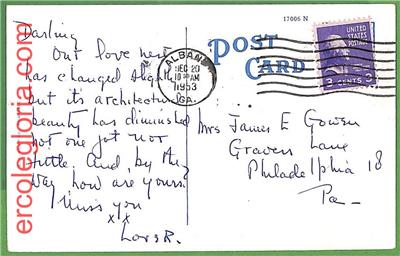 17006 N
POST
CARD
ALBANY
DEC 20
10 30 AM
1953
GA.
UNITED
STATES
POSTAGE
3 CENTS 3
Darling
Our love nest
has changed slightly
but its architectural
beauty has diminished
not one jot nor
tittle. And, by the
way how are yours?
Miss you
x x
Love R.
Mrs James E Gowen
Gravers Lane
Philadelphia 18
Pa
ercolegloria.com